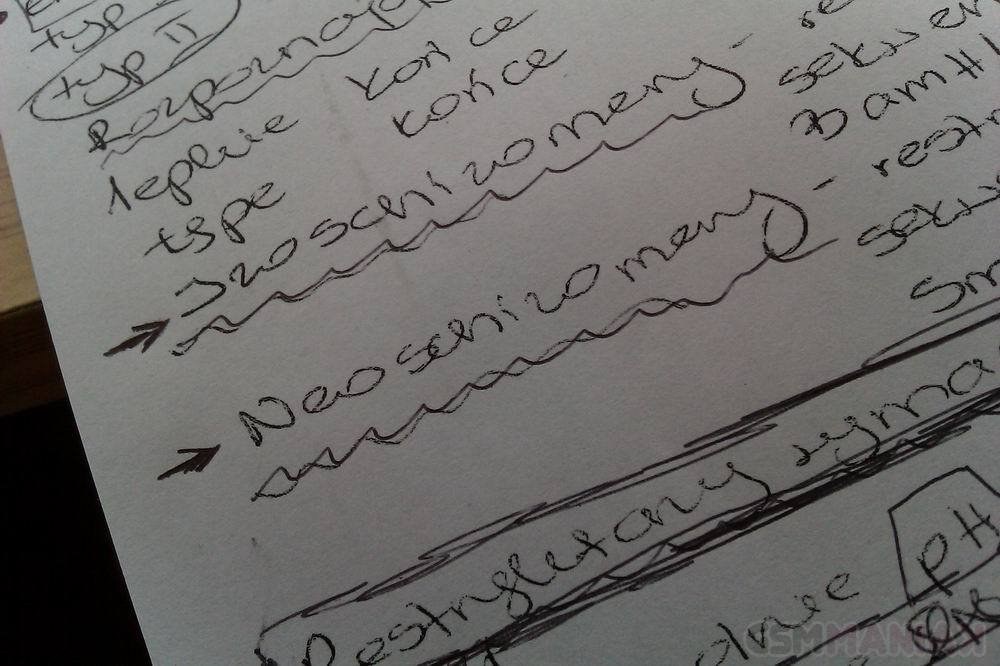 typ
typ II
Rozpoznaj
lepkie końce
tępe końce
→ Izoschizomeny - re
sekwen
BamHI
→ Neoschizomeny - restr
sekw
Sma
Restryktazy wyma
pH
GSMMANIAK